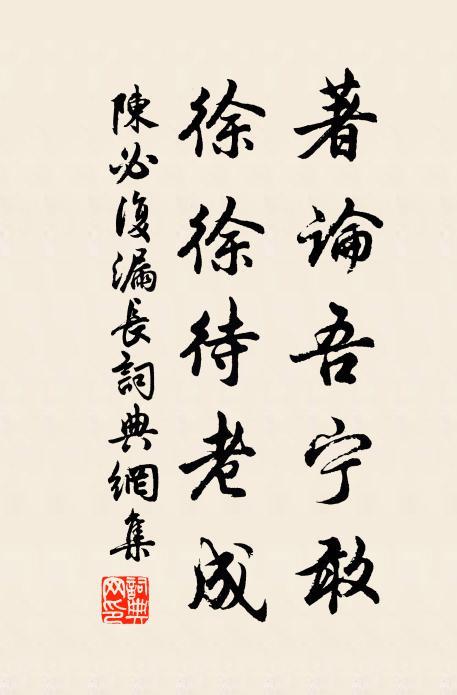 著論吾宁敢
徐徐待老成
陳必復漏長詞典網集
詞典网印